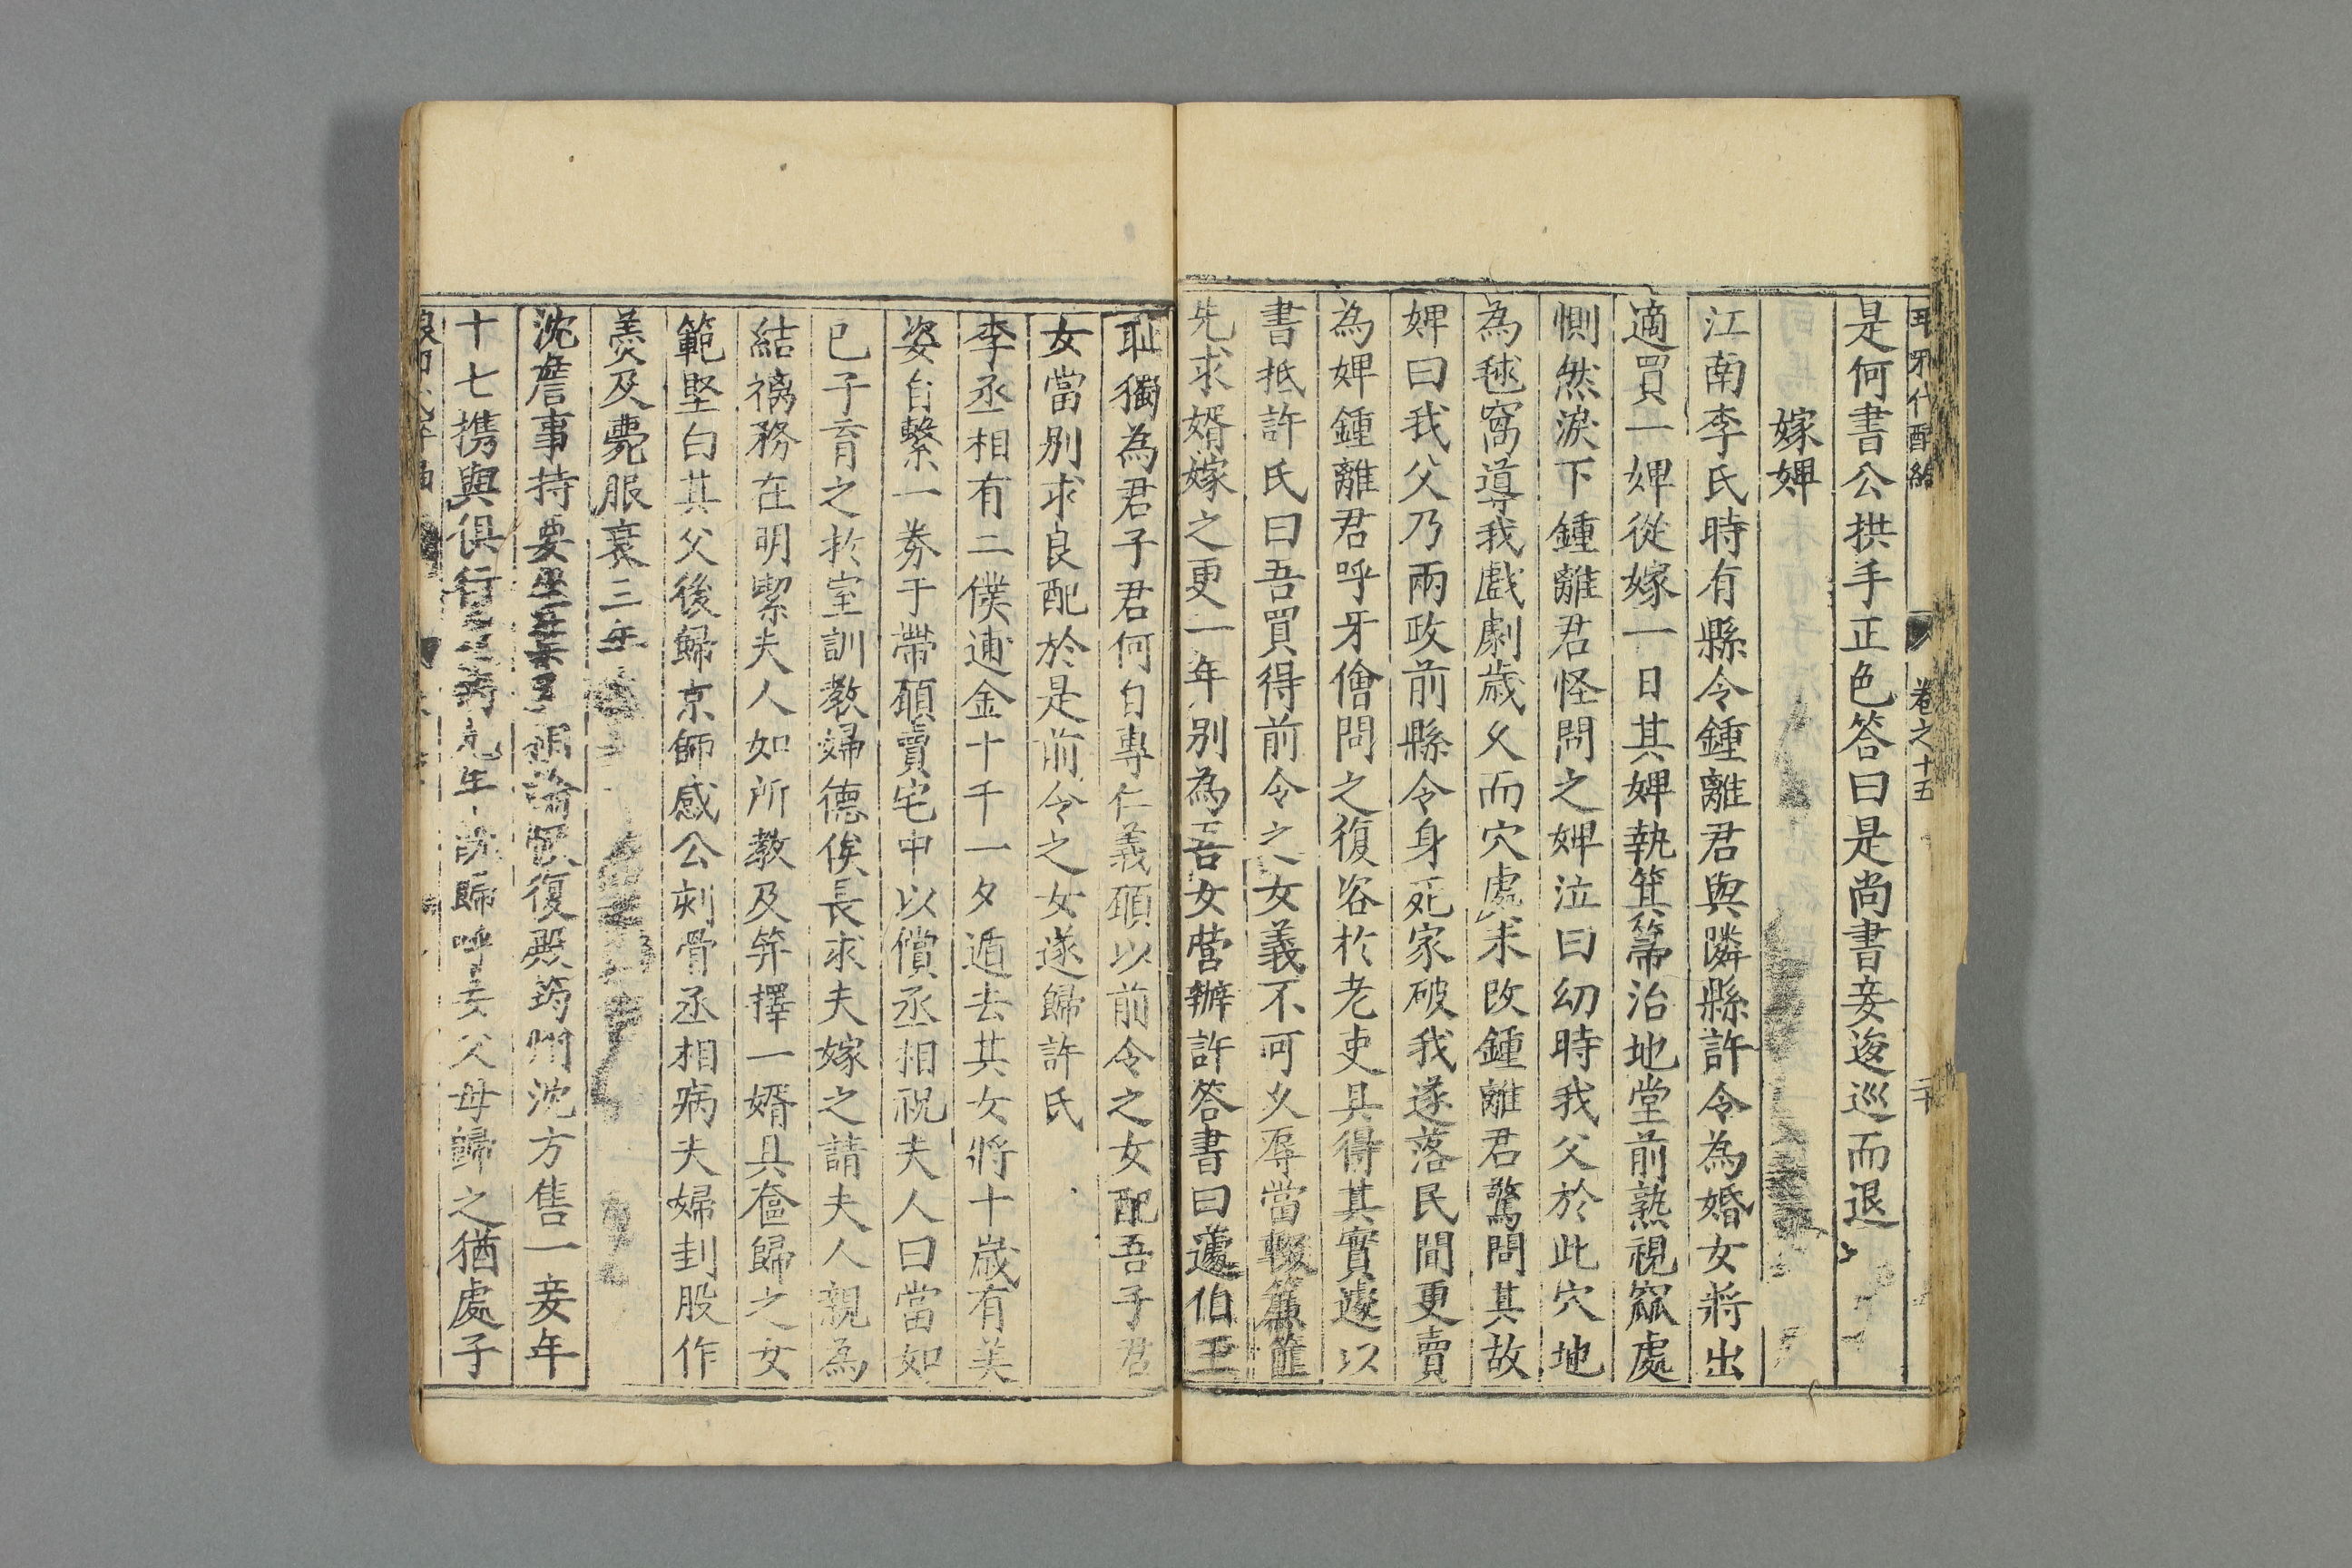 卷之十五
是何書公拱手正色答曰是尚書妾逡巡而退
嫁婢
江南李氏時有縣令鍾離君與隣縣許令為婚女將出
適買一婢從嫁一日其婢執箕箒治地堂前熟視窳處
惻然淚下鍾離君怪問之婢泣曰幼時我父於此穴地
為毬窩導我戲劇歲久而穴處未改鍾離君驚問其故
婢曰我父乃兩政前縣令身死家破我遂落民間更賣
為婢鍾離君呼牙儈問之復咨於老吏具得其實遽以
書抵許氏曰吾買得前令之女義不可久辱當輟奩篚
先求婿嫁之更一年別為吾女營辦許答書曰蘧伯玉
耻獨為君子君何自專仁義願以前令之女配吾子君
女當別求良配於是前令之女遂歸許氏
李丞相有二僕逋金十千一夕遁去其女將十歲有美
姿自繫一券于帶願賣宅中以償丞相祝夫人曰當如
已子育之扵室訓教婦德俟長求夫嫁之請夫人親為
結褵務在明㓗夫人如所教及笄擇一婿具奩歸之女
範堅白其父後歸京師感公刻骨丞相病夫婦刲股作
羹及薨服衰三年
沈詹事持要坐葉丞相論恢復貶筠州沈方售一妾年
十七携與俱行凡七年既歸呼妾父母歸之猶處子